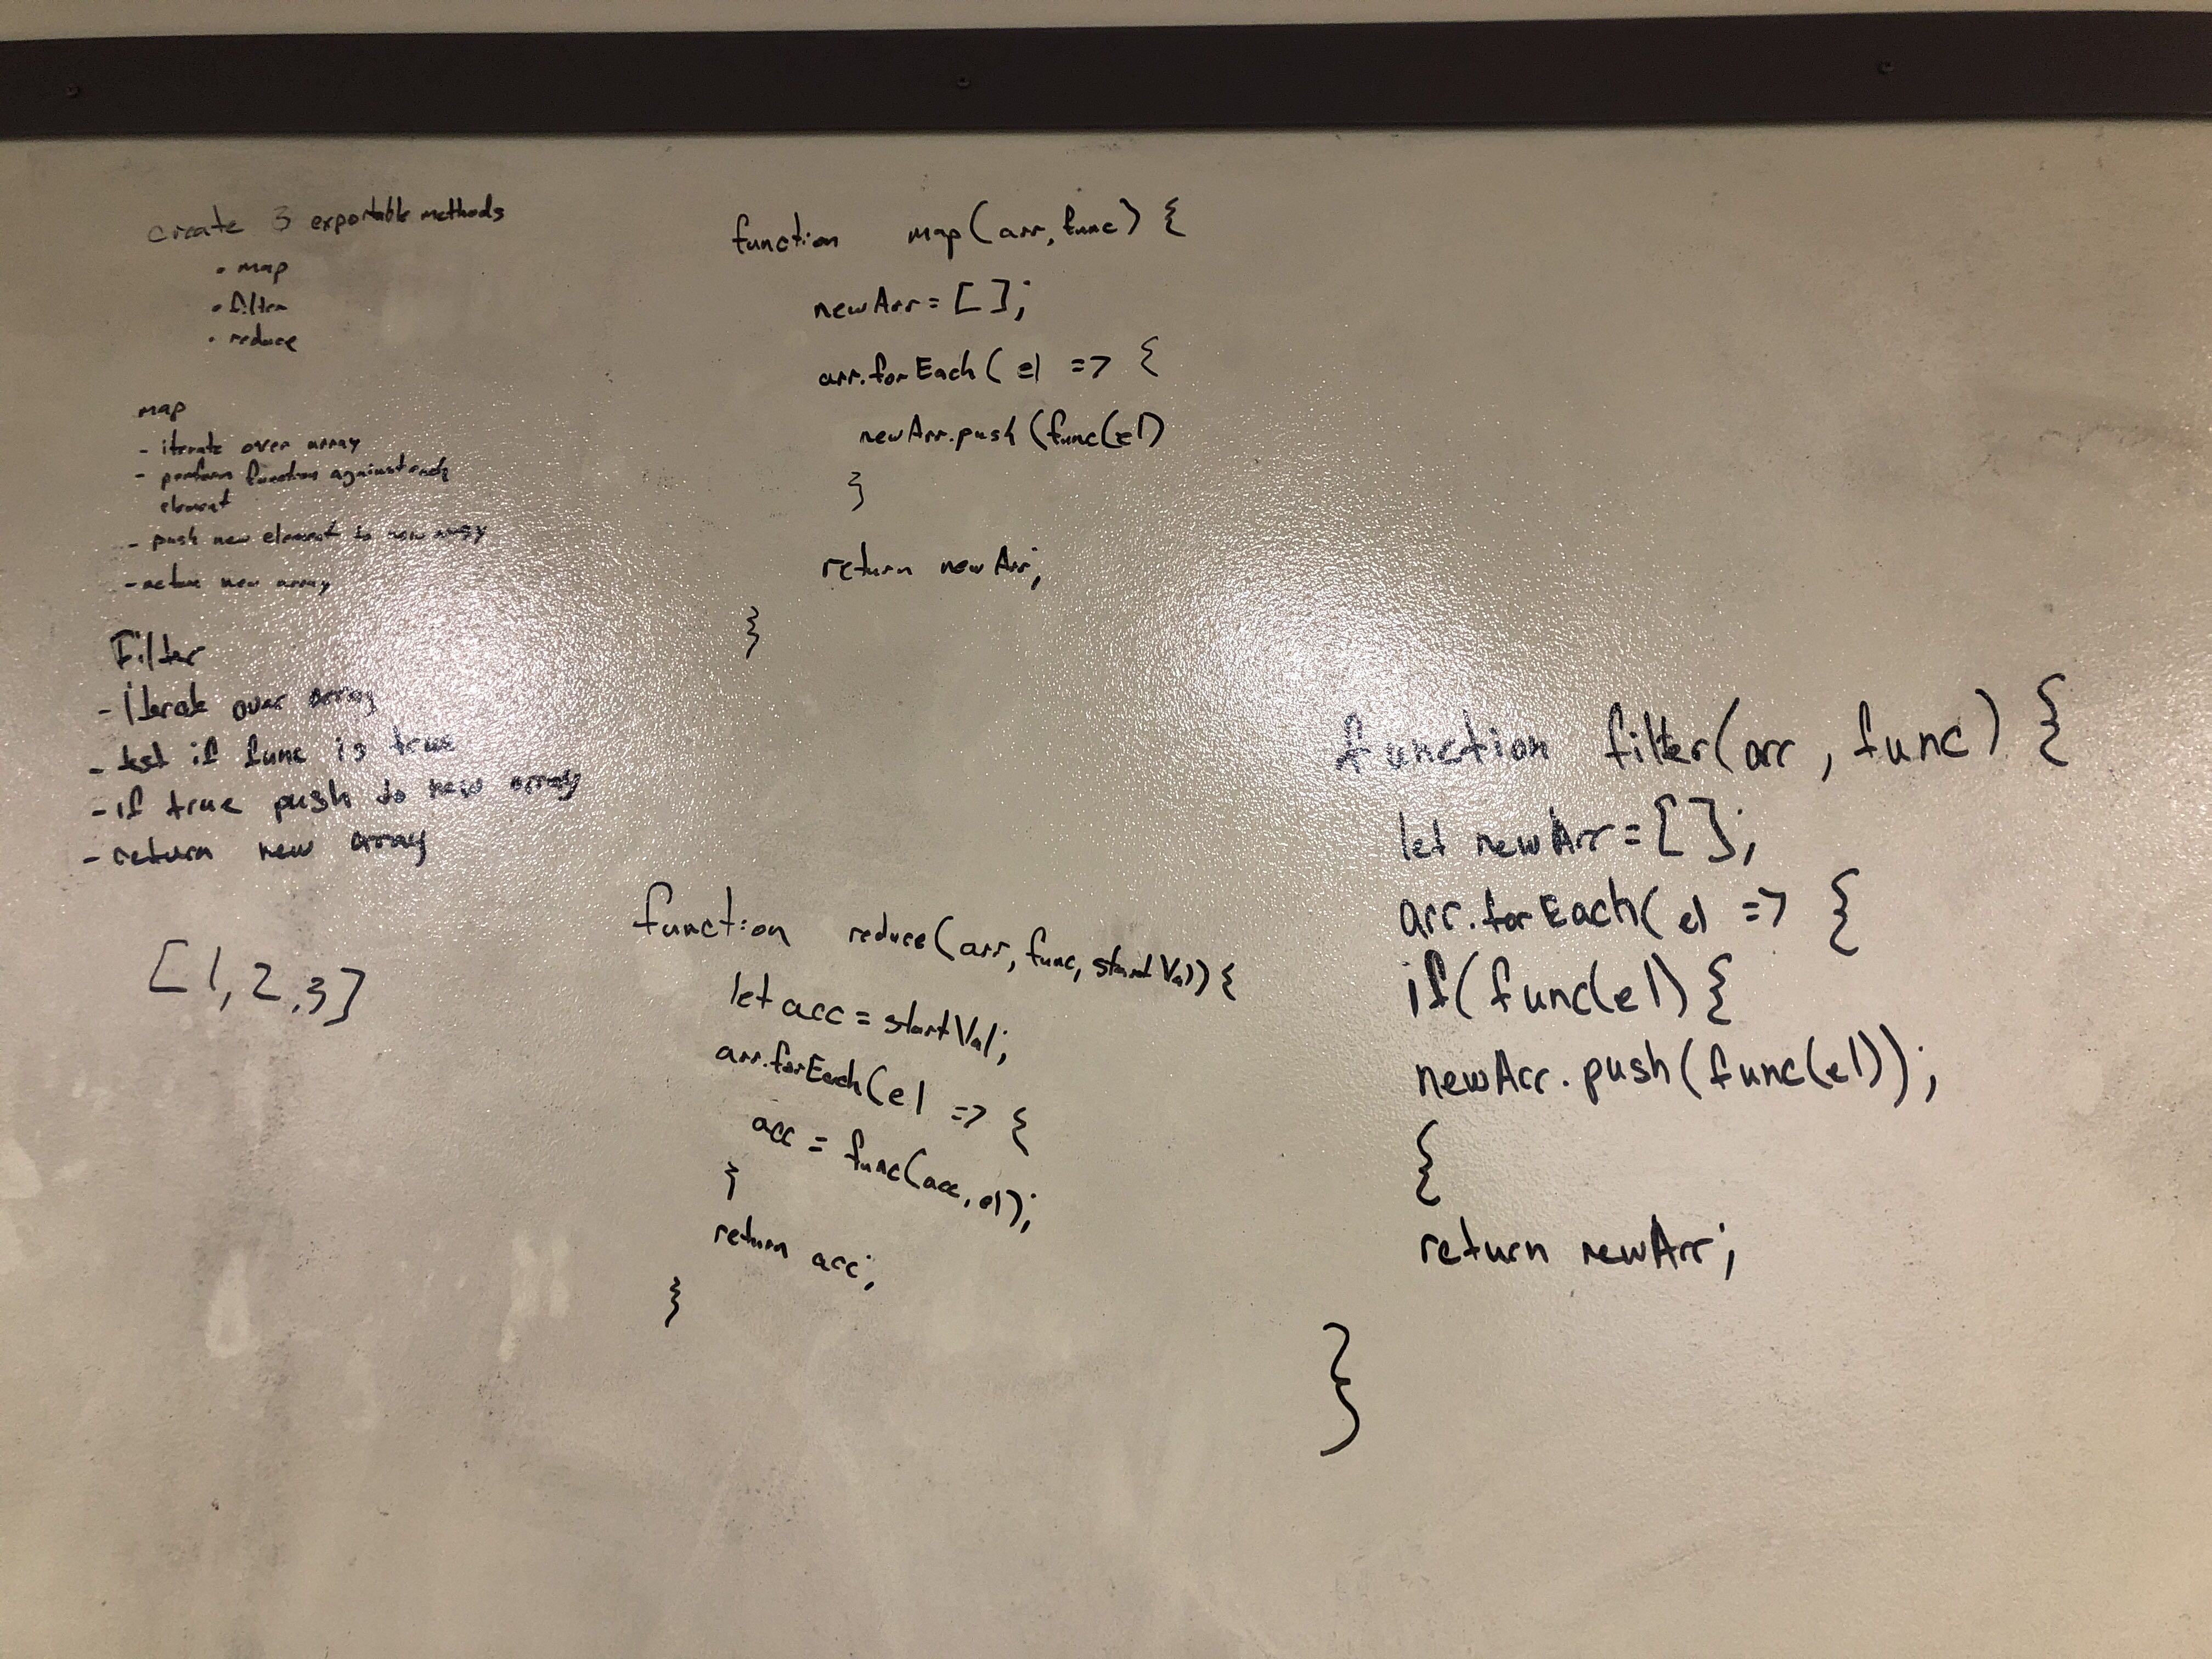 create 3 exportable methods
• map
• filter
• reduce
map
- iterate over array
- perform function against each
element
- push new element to new array
- return new array
Filter
- iterate over array
- test if func is true
- if true push to new array
- return new array
[1,2,3]
function map(arr, func) {
newArr = [];
arr.forEach( el => {
newArr.push (func(el)
}
return newArr;
}
function reduce(arr, func, startVal) {
let acc = startVal;
arr.forEach(el => {
acc = func(acc, el);
}
return acc;
}
function filter(arr, func) {
let newArr = [];
arr.forEach( el => {
if( func(el) {
newArr.push( func(el));
{
return newArr;
}